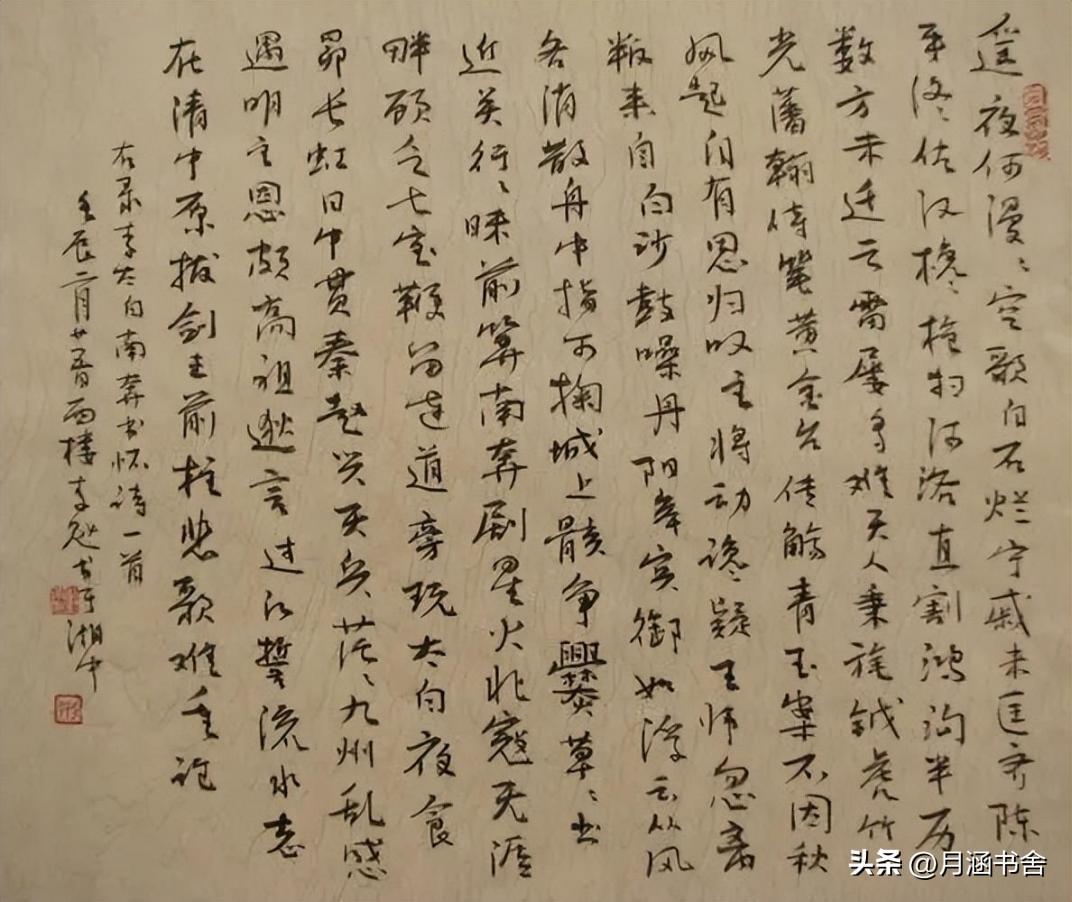 遥夜何漫〻空歌白石烂宁戚未匡齐陈
平终佐汉欃枪扫河洛直割鸿沟半历
数方未迁云雷屡多难天人秉旄钺虎竹
光藩翰侍笔黄金台传觞青玉案不因秋
风起自有思归叹主将动谗疑王师忽离
叛来自白沙鼓噪丹阳岸宾御如浮云从风
各消散舟中指可掬城上骸争爨草〻出
近关行〻昧前算南奔剧星火北寇无涯
畔顾乏七宝鞭留连道旁玩太白夜食
昴长虹日中贯秦赵兴天兵茫〻九州乱感
遇明主恩颇高祖逖言过江誓流水志
在清中原拔剑击前柱悲歌难重论
右录李太白南奔书怀诗一首
壬辰二月廿西楼李书于湖中
头条 @月涵书舍